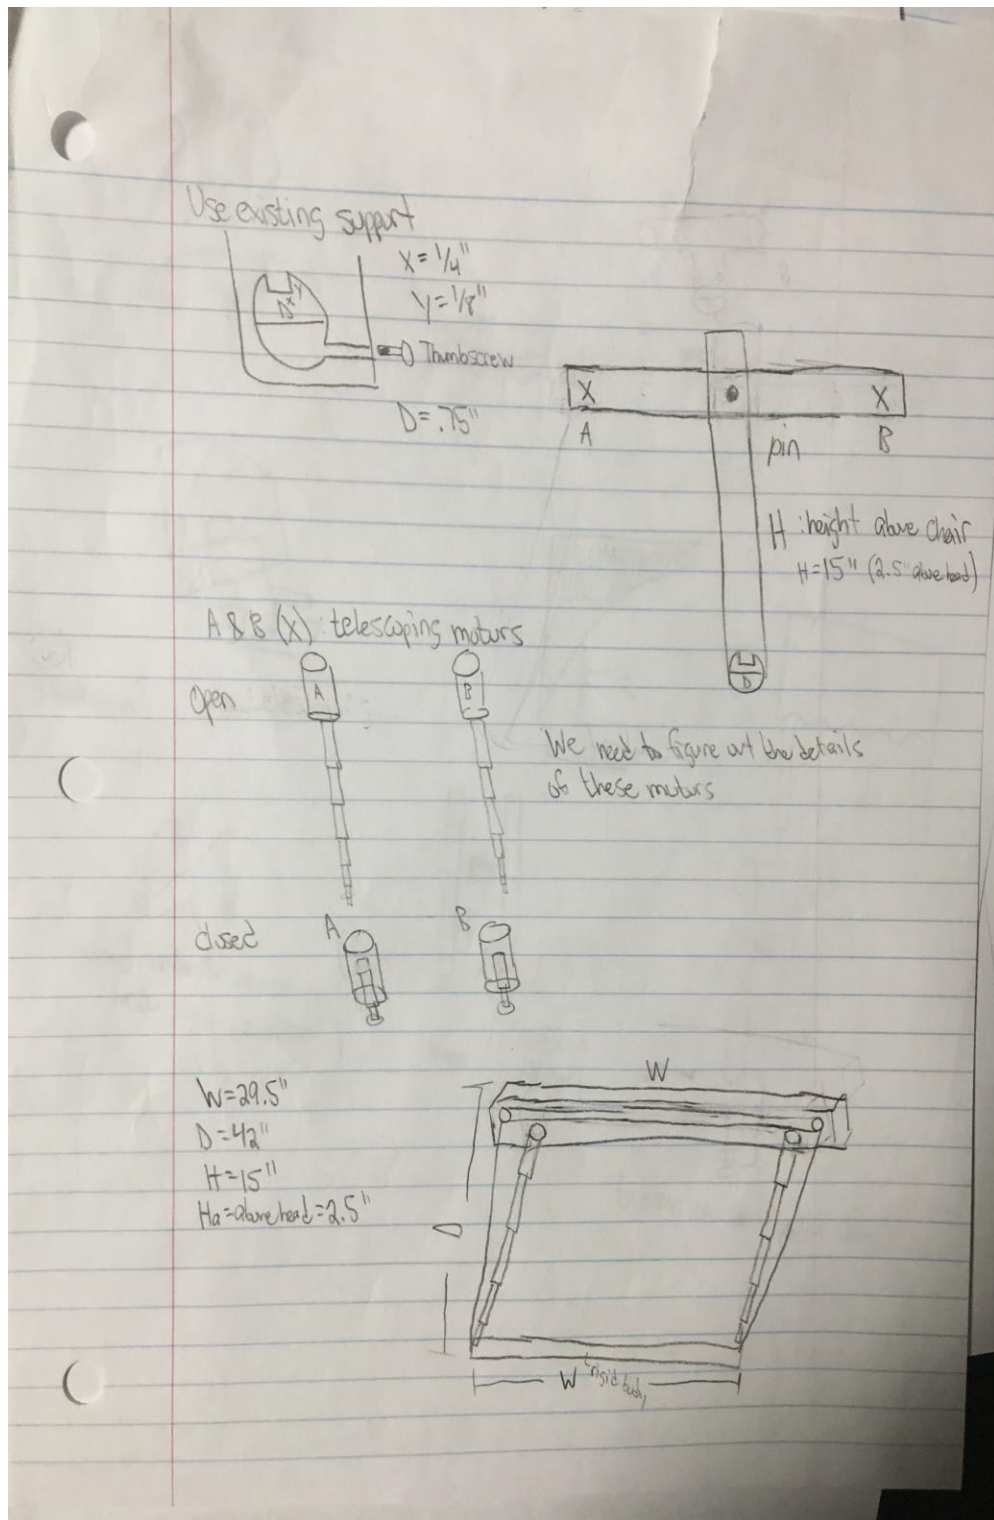 Use existing support
X = 1/4"
Y = 1/8"
X
Y
D
Thumbscrew
D = .75"
X
X
A
B
pin
H : height above chair
H = 15" (2.5" above head)
D
A & B (X) : telescoping motors
Open
A
B
We need to figure out the details
of these motors
closed
A
B
W = 29.5"
D = 42"
H = 15"
Ha = above head = 2.5"
W
D
W
rigid body